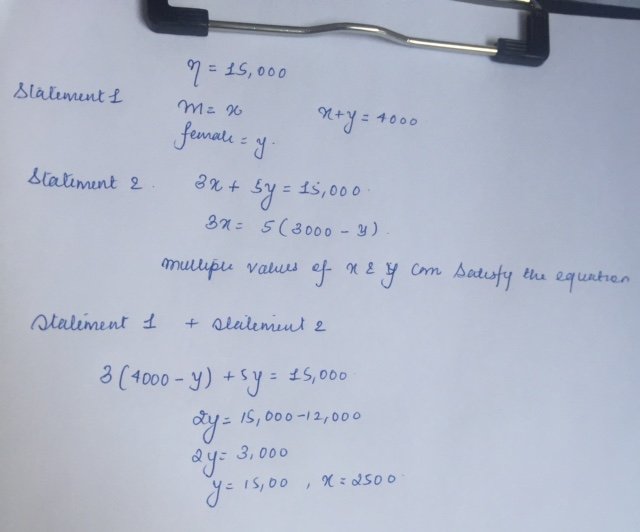 η = 15,000
Statement 1
m = x x + y = 4000
female = y.
Statement 2. 3x + 5y = 15,000.
3x = 5(3000 - y).
multiple values of x & y can satisfy the equation
Statement 1 + Statement 2
3(4000 - y) + 5y = 15,000
2y = 15,000 - 12,000
2y = 3,000
y = 15,00 , x = 2500